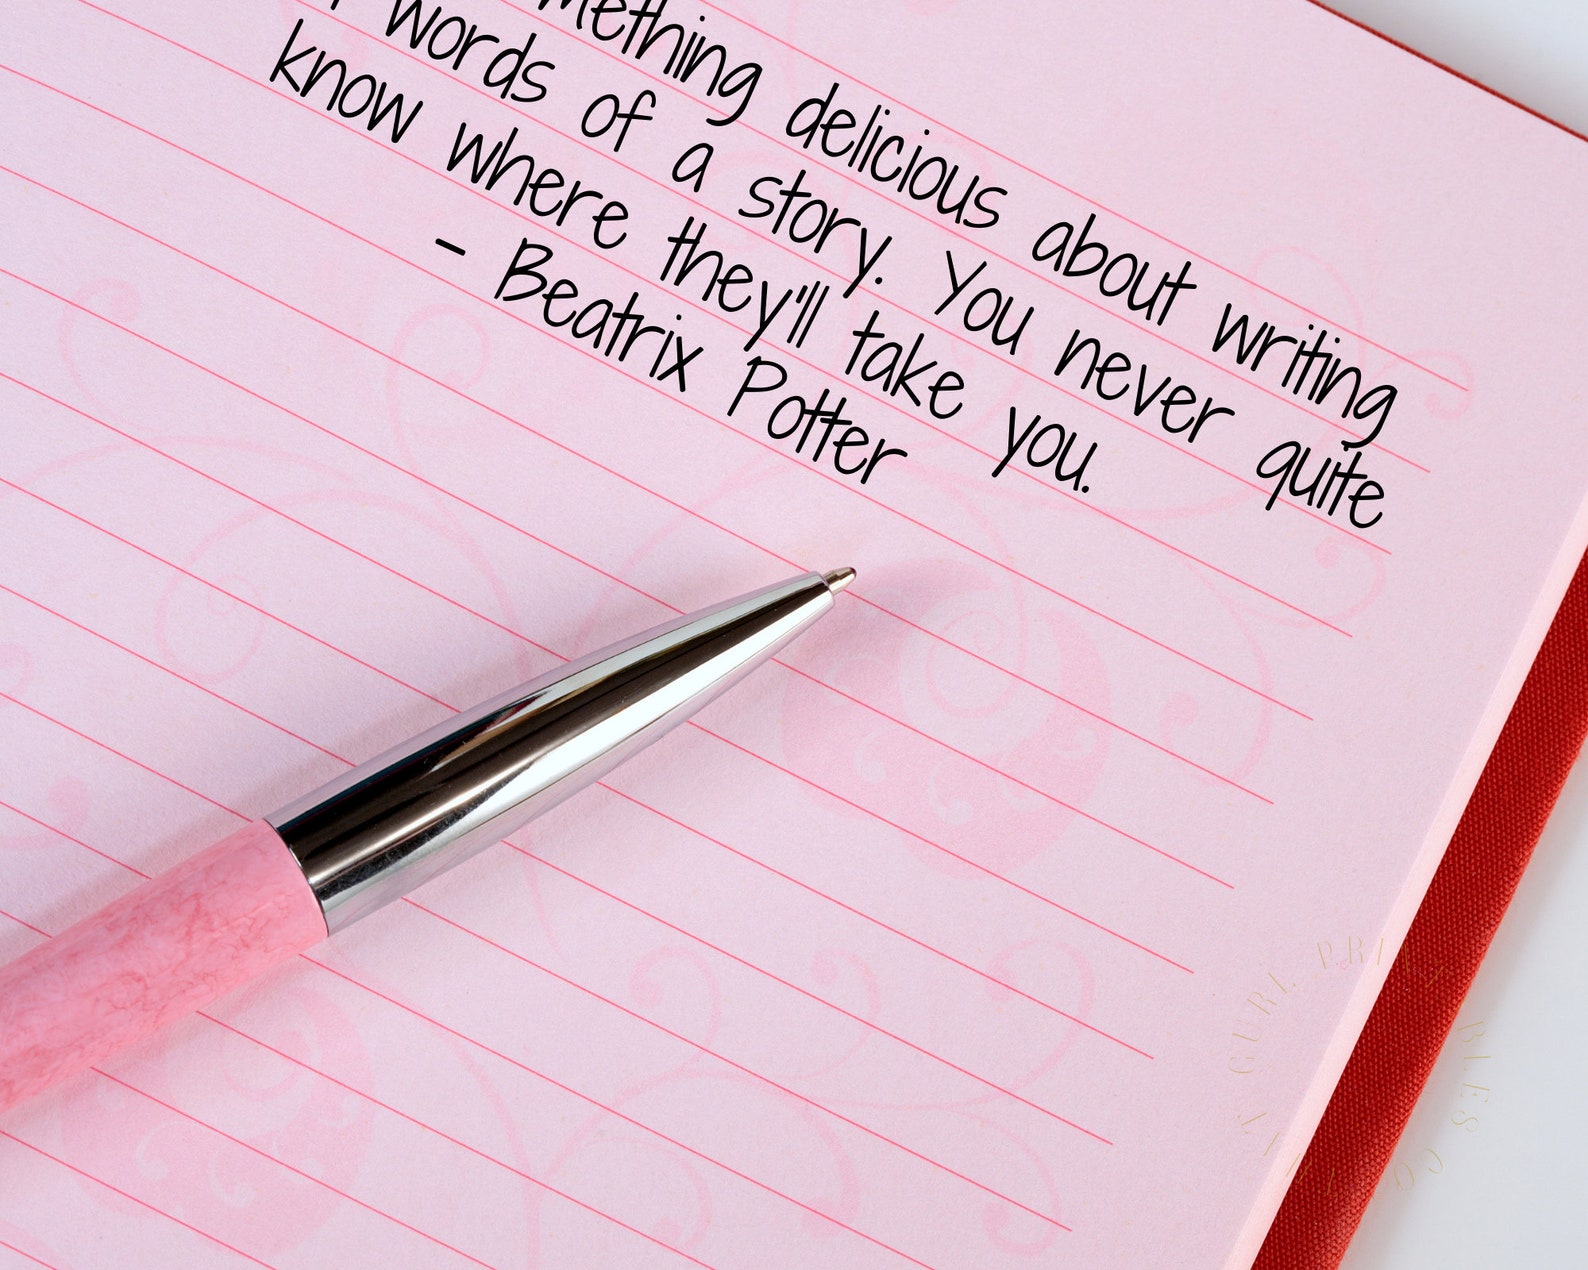 mething delicious about writing
words of a story. You never quite
know where they'll take you.
- Beatrix Potter
GURL PRINTABLES CO